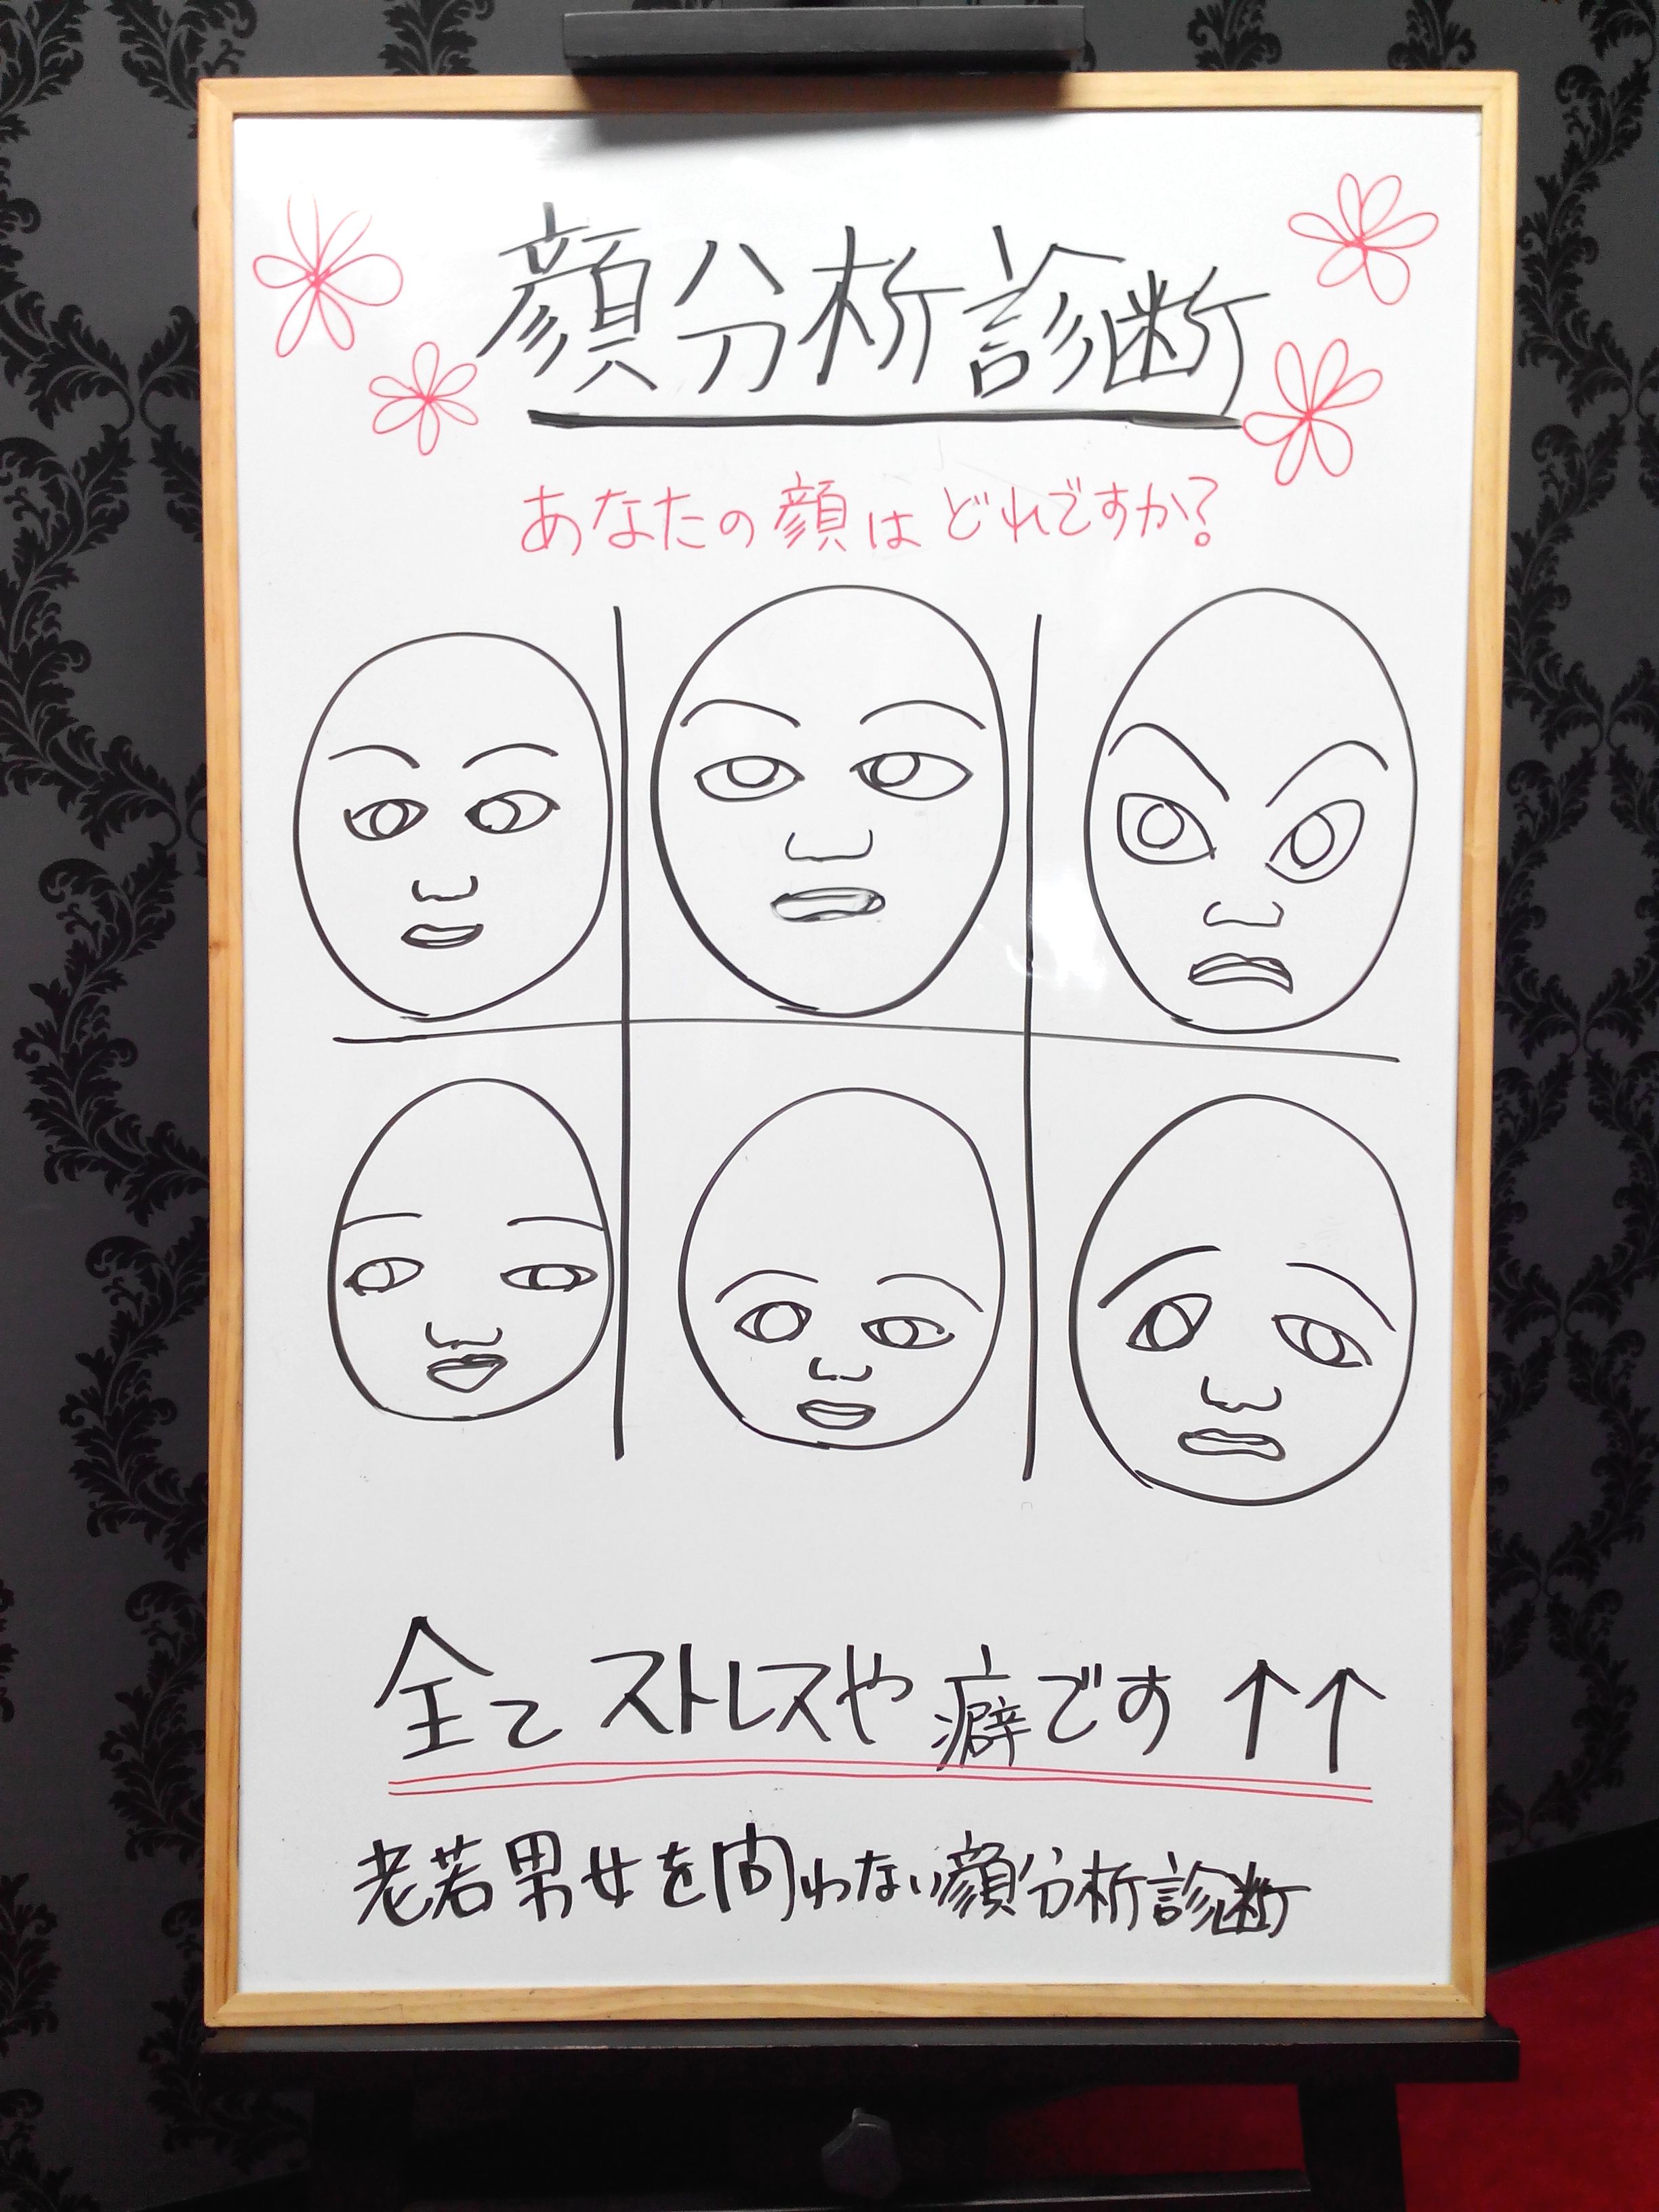 顔分析診断
あなたの顔はどれですか？
全てストレスや癖です ↑↑
老若男女を問わない顔分析診断